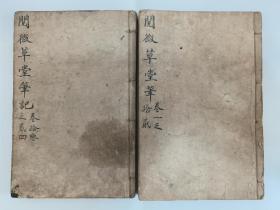 閱微草堂筆記
卷拾叁
之貳四
閱微草堂筆
卷一之
拾貳